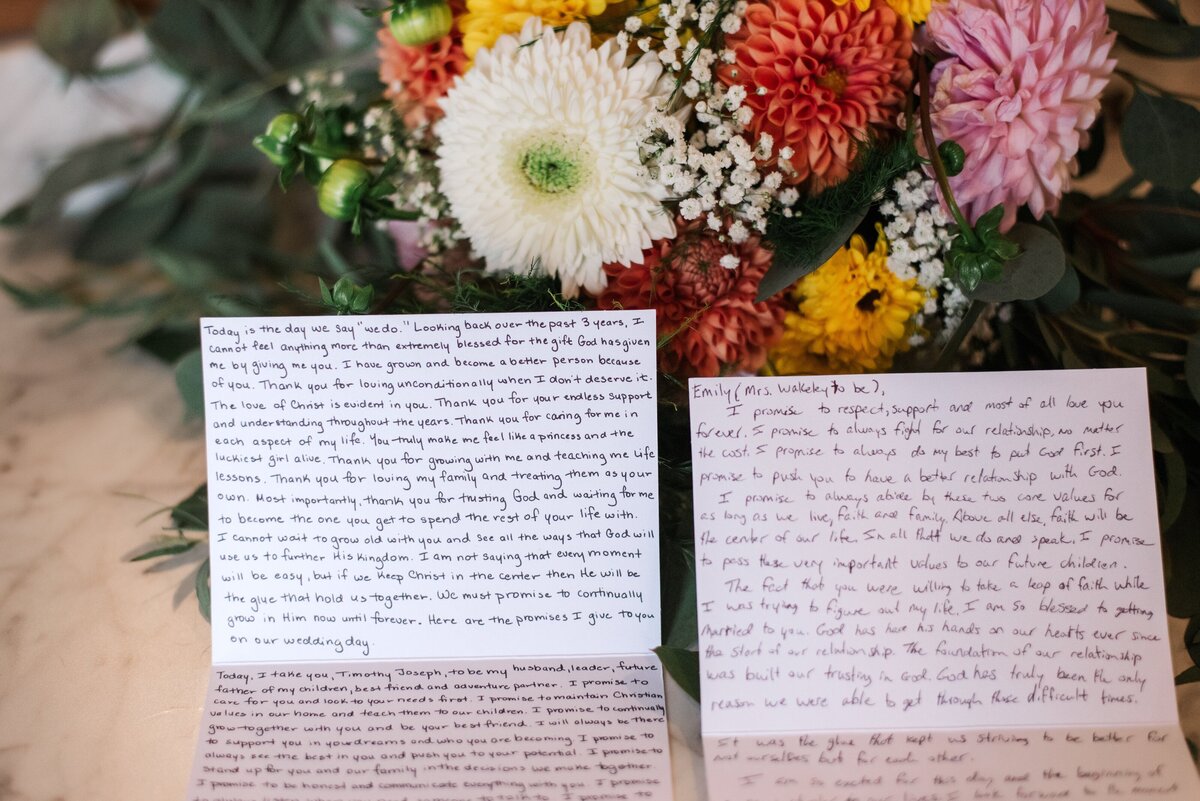 Today is the day we say "we do." Looking back over the past 3 years, I
cannot feel anything more than extremely blessed for the gift God has given
me by giving me you. I have grown and become a better person because
of you. Thank you for loving unconditionally when I don't deserve it.
The love of Christ is evident in you. Thank you for your endless support
and understanding throughout the years. Thank you for caring for me in
each aspect of my life. You truly make me feel like a princess and the
luckiest girl alive. Thank you for growing with me and teaching me life
lessons. Thank you for loving my family and treating them as your
own. Most importantly, thank you for trusting God and waiting for me
to become the one you get to spend the rest of your life with.
I cannot wait to grow old with you and see all the ways that God will
use us to further His Kingdom. I am not saying that every moment
will be easy, but if we keep Christ in the center then He will be
the glue that hold us together. We must promise to continually
grow in Him now until forever. Here are the promises I give to you
on our wedding day.
Today, I take you, Timothy Joseph, to be my husband, leader, future
father of my children, best friend and adventure partner. I promise to
care for you and look to your needs first. I promise to maintain Christian
values in our home and teach them to our children. I promise to continually
grow together with you and be your best friend. I will always be there
to support you in your dreams and who you are becoming. I promise to
always see the best in you and push you to your potential. I promise to
stand up for you and our family in the decisions we make together.
I promise to be honest and communicate everything with you. I promise
Emily (Mrs. Wakeley to be),
I promise to respect, support and most of all love you
forever. I promise to always fight for our relationship, no matter
the cost. I promise to always do my best to put God first. I
promise to push you to have a better relationship with God.
I promise to always abide by these two core values for
as long as we live, faith and family. Above all else, faith will be
the center of our life. In all that we do and speak, I promise
to pass these very important values to our future children.
The fact that you were willing to take a leap of faith while
I was trying to figure out my life, I am so blessed to getting
married to you. God has have his hands on our hearts ever since
the start of our relationship. The foundation of our relationship
was built our trusting in God. God has truly been the only
reason we were able to get through those difficult times.
It was the glue that kept us striving to be better for
not ourselves but for each other.
I am so excited for this day and the beginning of
our lives. I look forward to the moment